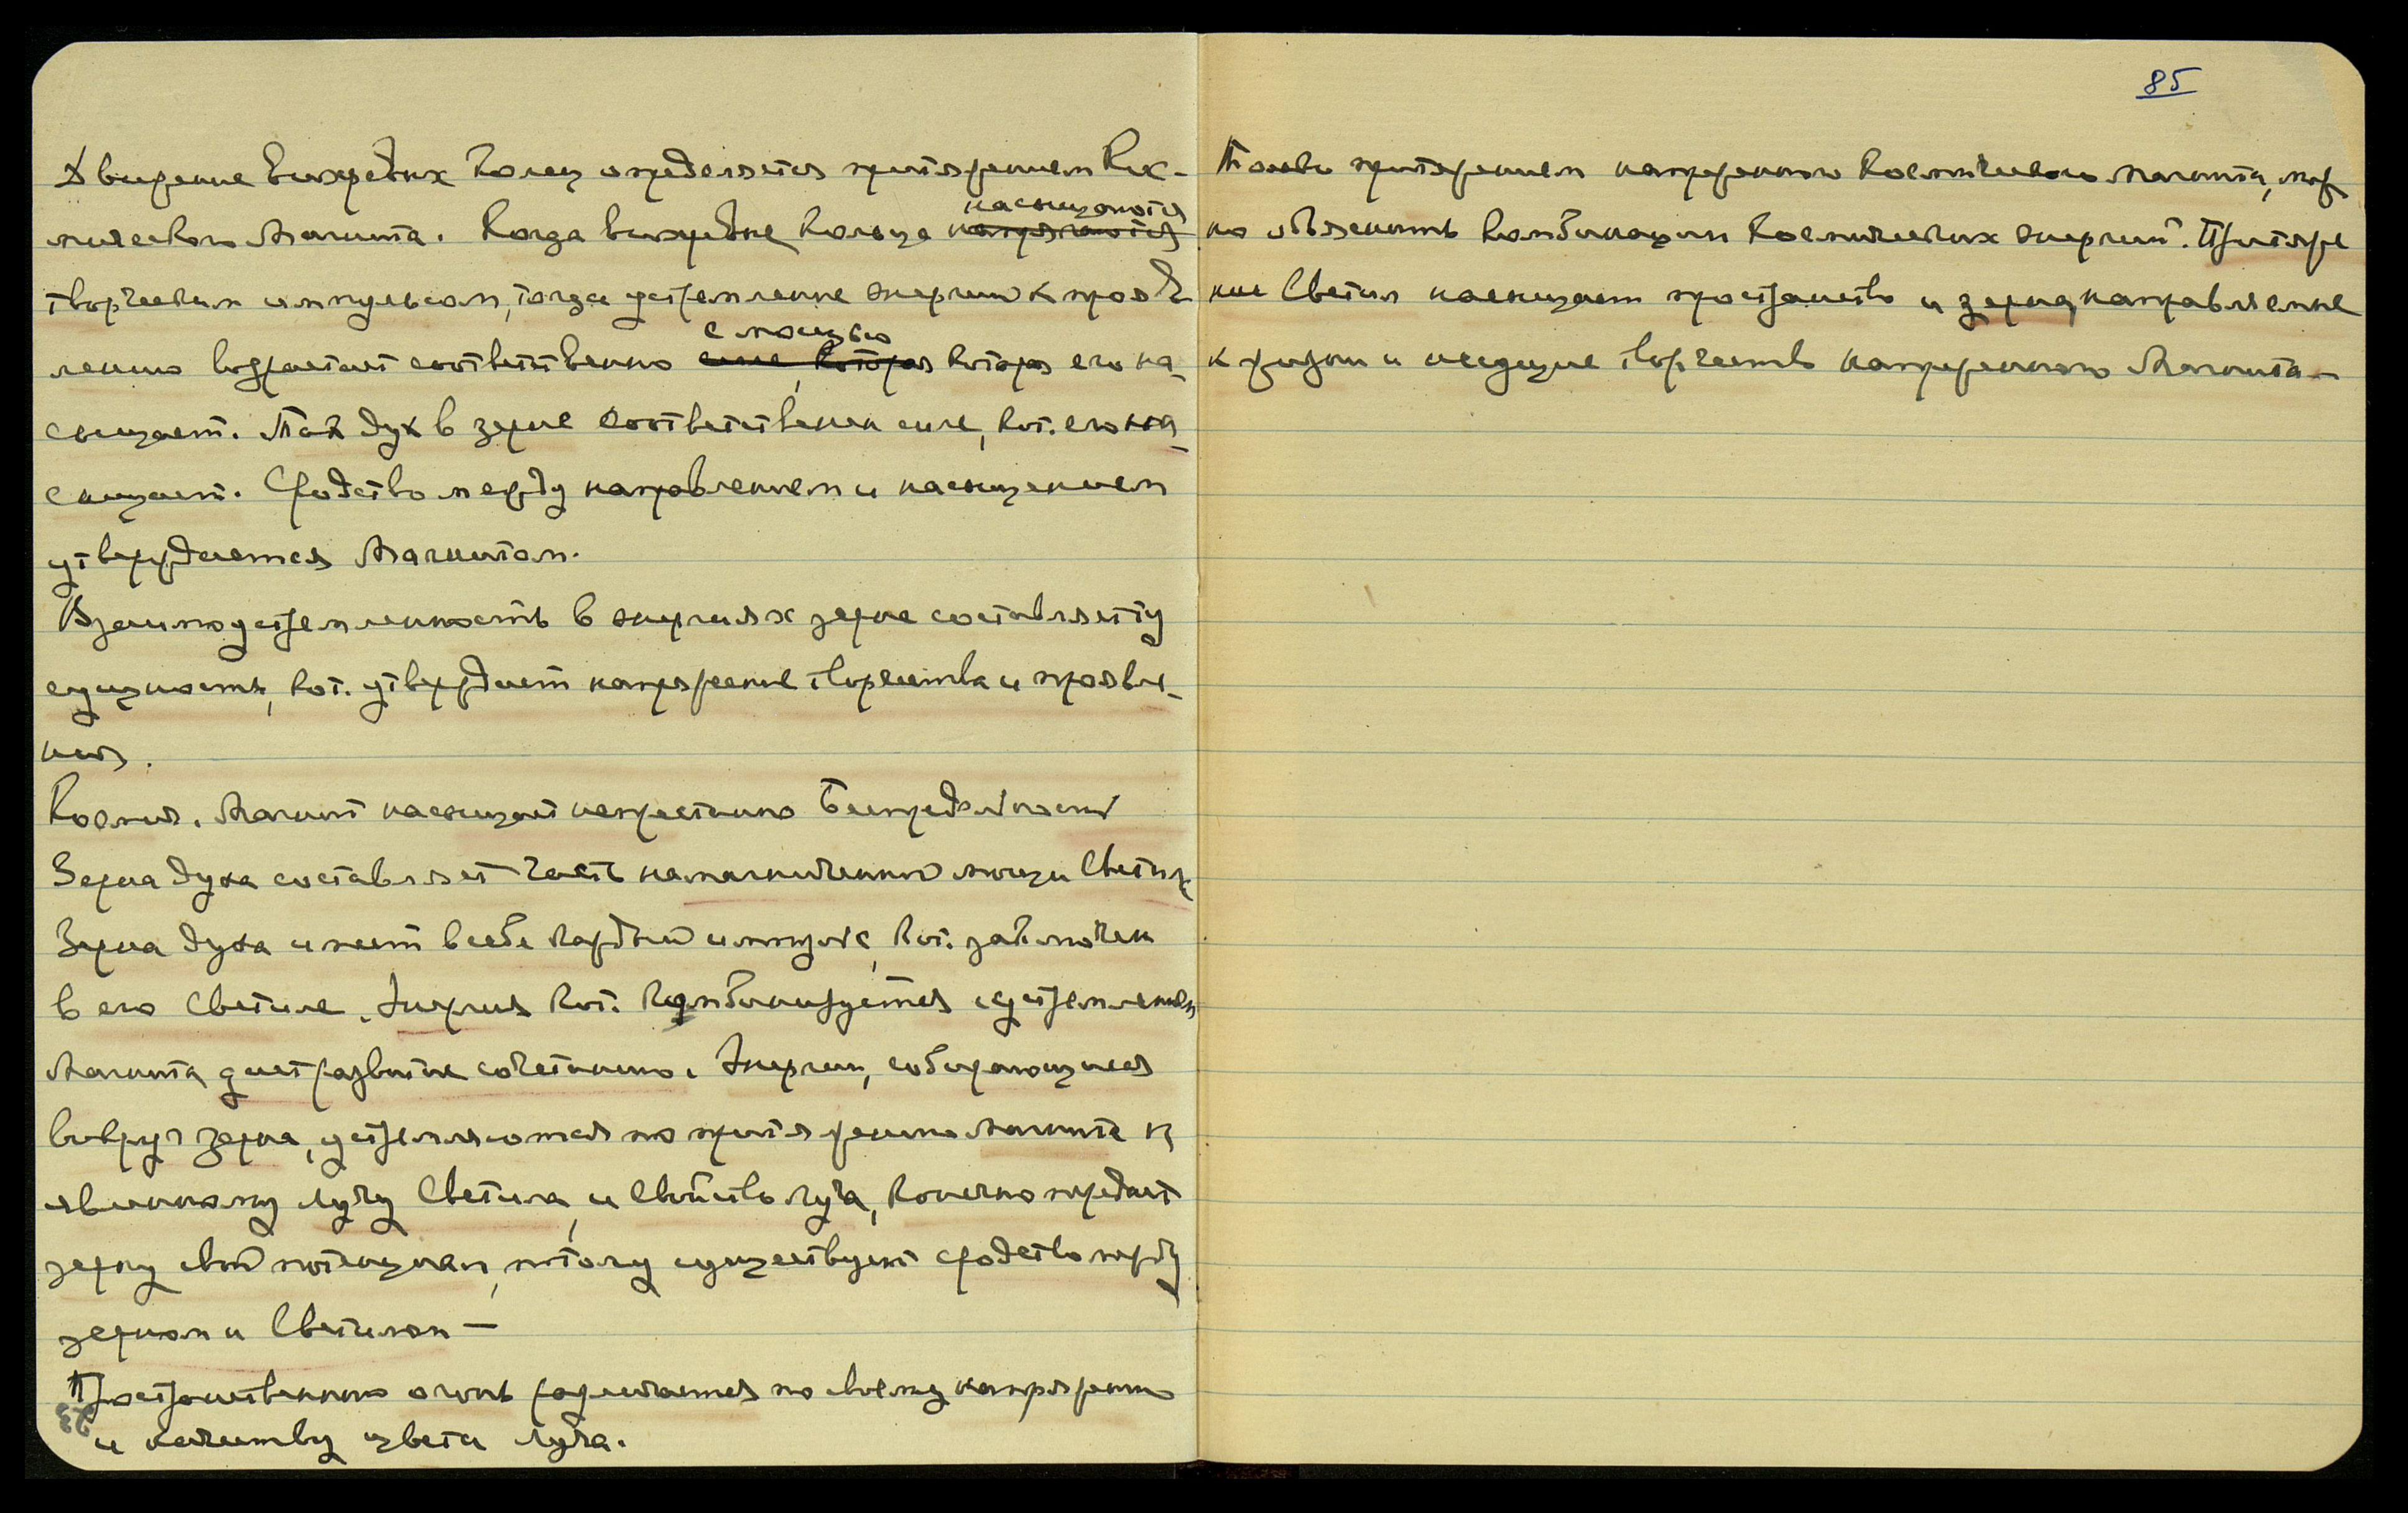 Движение вихревых колец определяется притяжением Кос-
мического Магнита. Когда вихревые кольца напрягаются насыщаются
творческим импульсом, тогда устремление энергии к прояв
лению возрастает соответственно силе, которая с мощью которая его на-
сыщает. Так дух в зерне соответственен силе, кот. его на-
сыщает. Сродство между направлением и насыщением
утверждается Магнитом.
Взаимоустремленность в энергиях зерна составляет ту
сущность, кот. утверждает напряжение творчества и проявле-
ния.
Космич. Магнит насыщает непрестанно Беспредельность
Зерна духа составляет часть намагниченной мощи Светил,
Зерна духа имеет в себе каждый импульс, кот. заключен
в его Светиле. Энергия кот. комбинируется с устремлением
Магнита дает развитие сочетанию. Энергии, собирающиеся
вокруг зерна, устремляются по притяжению Магнита к
явленному лучу Светила, и свойство луча, конечно передает
зерну свой потенциал, потому существует сродство между
зерном и Светилом —
Пространственного огонь различается по своему напряжению
и качеству цвета луча.
23
85
Только притяжением напряженного Космического Магнита, мож
но объяснить комбинации Космических энергий. Притяже
ние Светил насыщает пространство и зерна, направление
к жизни и несущие творчество напряженного Магнита —